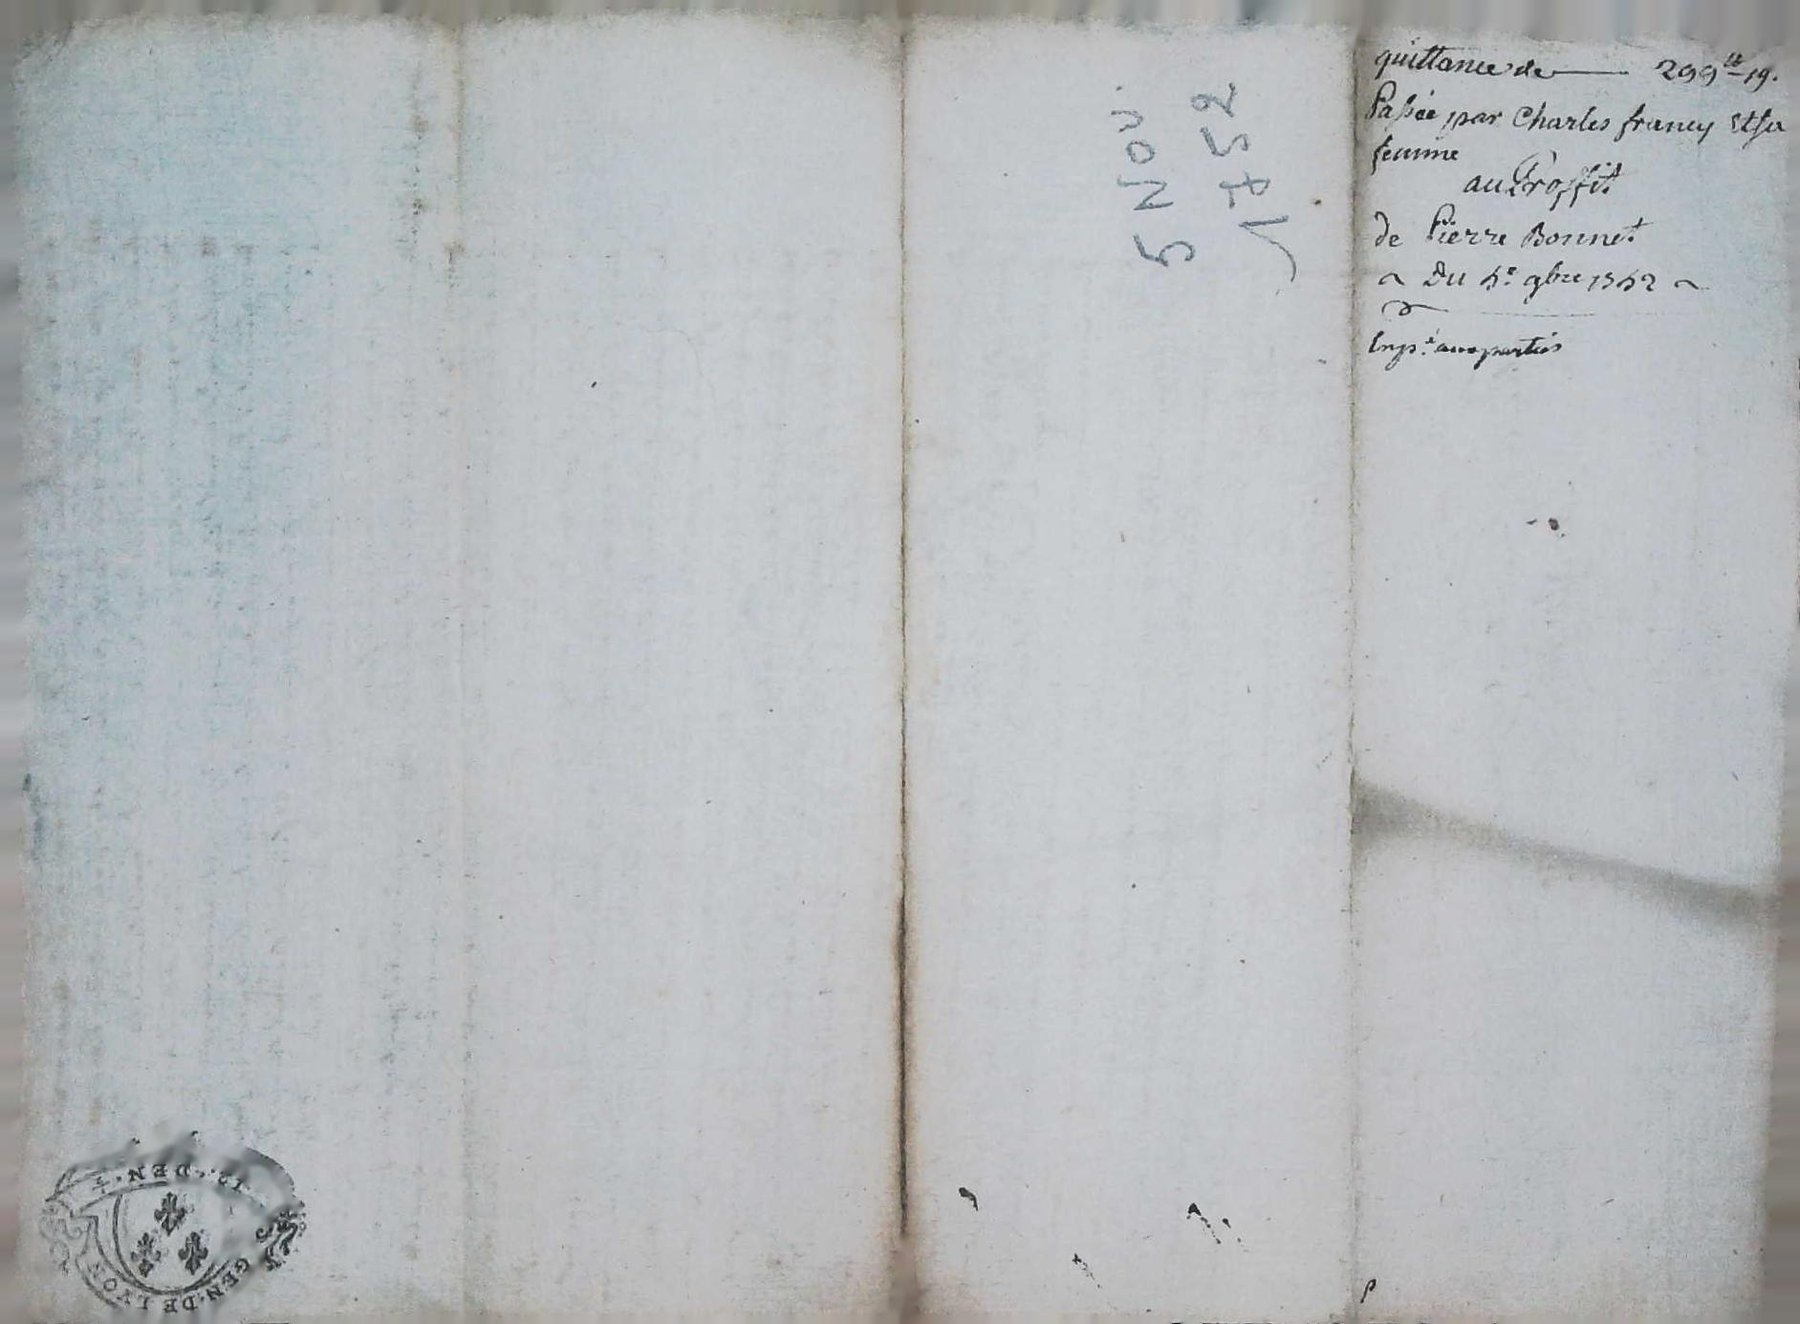 quittance de — 299 ₶ 19.
Passée par Charles francy Et sa
femme
au Proffit
de Pierre Bonnet
~ Du 5e. 9bre 1752 ~
Exp.é aux parties
5 Nov.
1752
DEN.
GEN·DE LYON